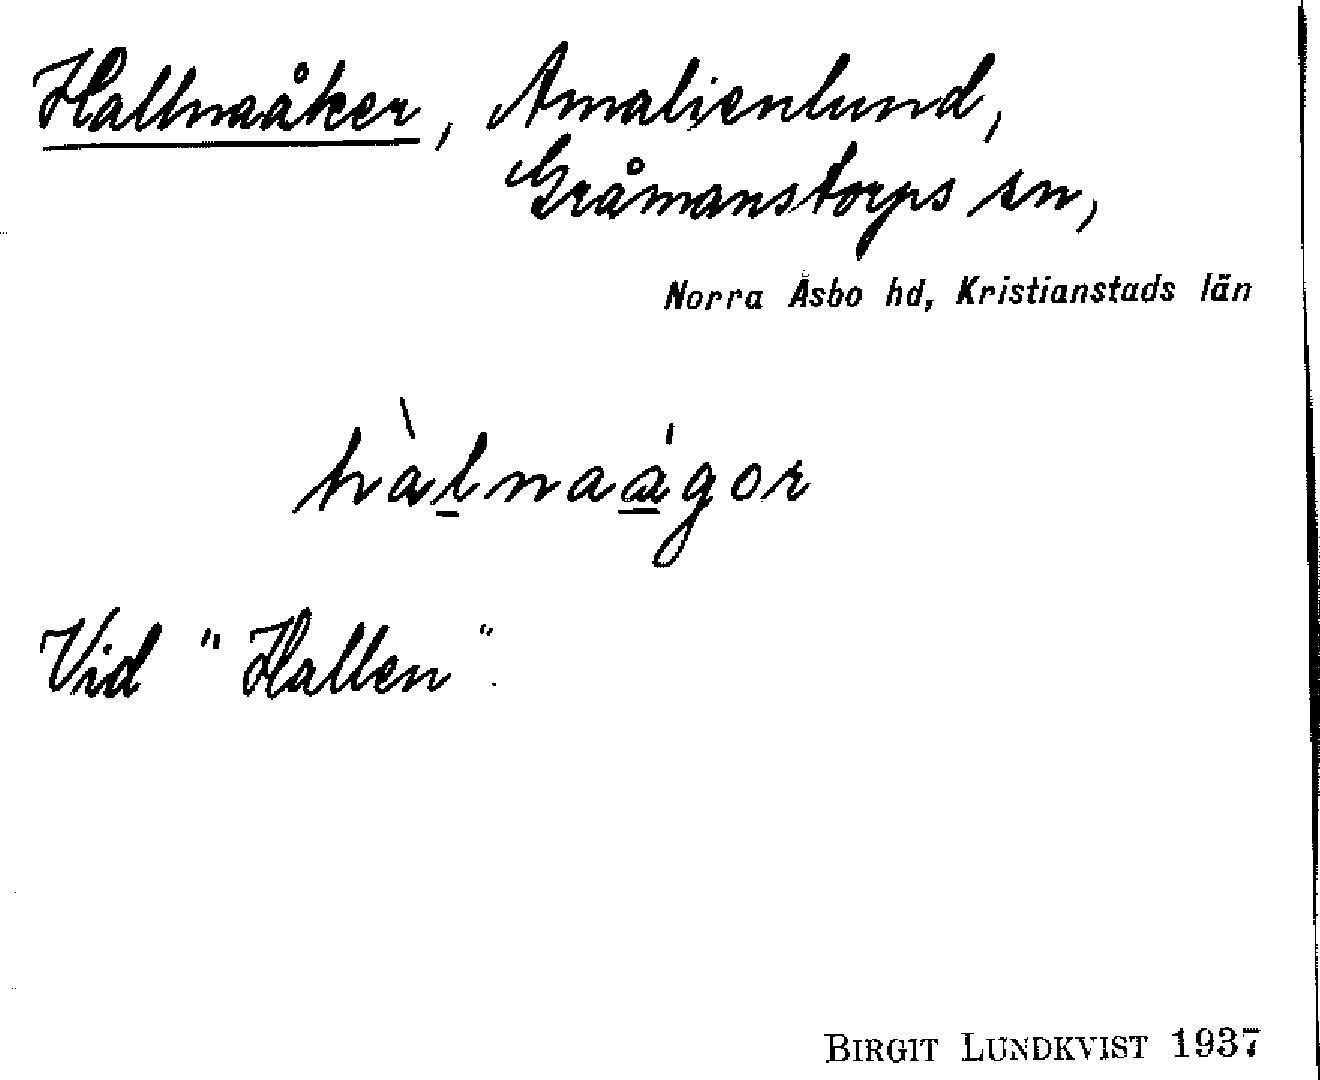 Hallnaåker, Amalienlund,
Gråmanstorps sn,
Norra Åsbo hd, Kristianstads län
hàl̲naá̲gor
Vid "Hallen".
BIRGIT LUNDKVIST 1937